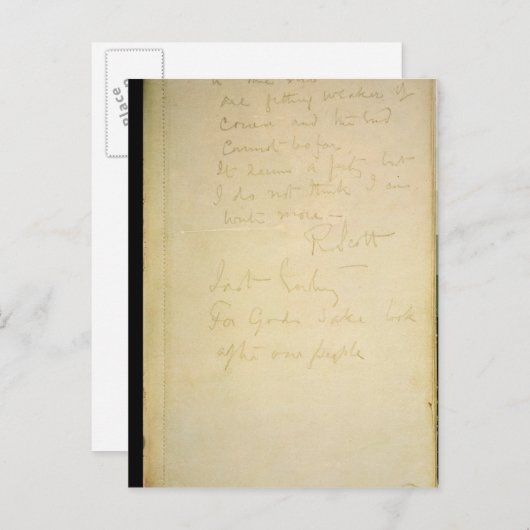 are getting weaker of
course and the end
cannot be far.
It seems a pity but
I do not think I can
write more —
R. Scott
Last Entry
For Gods sake look
after our people
zazzle
place